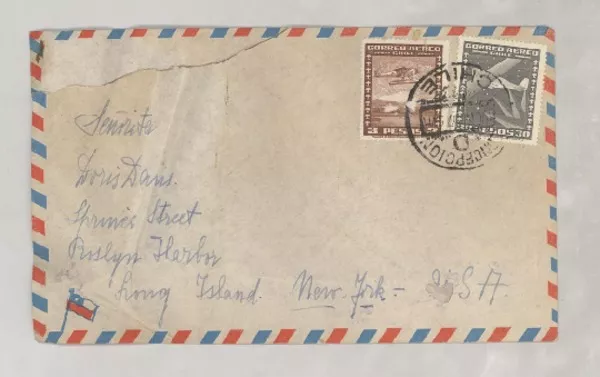 CORREO AEREO
CHILE
3 PESOS
CORREO AEREO
CHILE
PESOS 30
CHILE
Señorita
Doris
Street
Roslyn Harbor
Long Island. New-York- USA